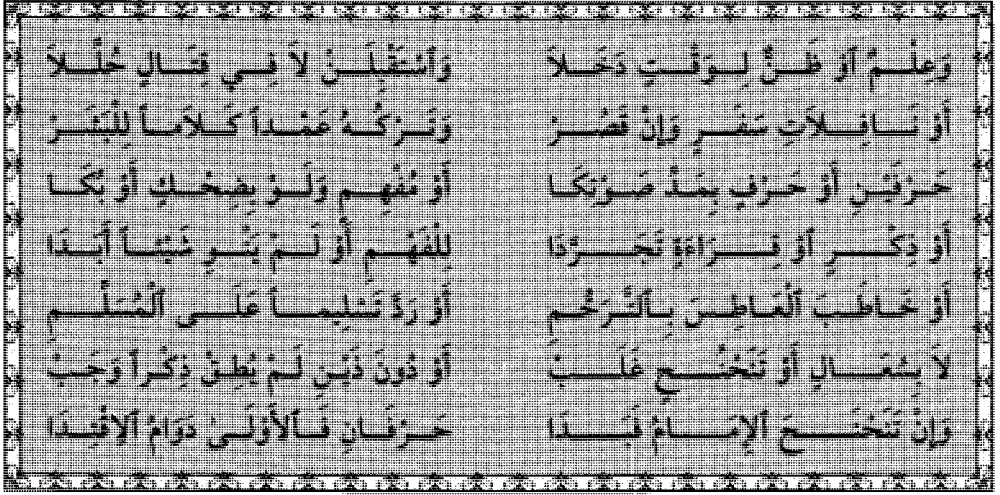 وَعِلْمٌ ٱوْ ظَنٌّ لِوَقْتٍ دَخَلَا وَٱسْتَقْبِلَنْ لاَ فِي قِتَالٍ حُلِّلاَ
أَوْ نَافِلاَتِ سَفَرٍ وَإِنْ قَصُرْ وَتَرْكُهُ عَمْداً كَلاَماً لِلْبَشَرْ
حَرْفَيْنِ أَوْ حَرْفٍ بِمَدِّ صَوْتِكَا أَوْ مُفْهِمٍ وَلَوْ بِضِحْكٍ أَوْ بُكَا
أَوْ ذِكْرٍ ٱوْ قِرَاءَةٍ تَجَرَّدَا لِلْفَهْمِ أَوْ لَمْ يَنْوِ شَيْئاً أَبَدَا
أَوْ خَاطَبَ ٱلْعَاطِسَ بِٱلتَّرَحُّمِ أَوْ رَدَّ تَسْلِيماً عَلَى ٱلْمُسَلِّمِ
لاَ بِسُعَالٍ أَوْ تَنَحْنُحٍ غَلَبْ أَوْ دُونَ ذَيْنِ لَمْ يُطِقْ ذِكْراً وَجَبْ
وَإِنْ تَنَحْنَحَ ٱلإِمَامُ فَبَدَا حَرْفَانِ فَٱلأَوْلَىٰ دَوَامُ ٱلاِقْتِدَا